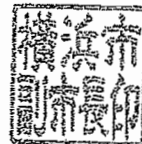 横浜市
副市長印